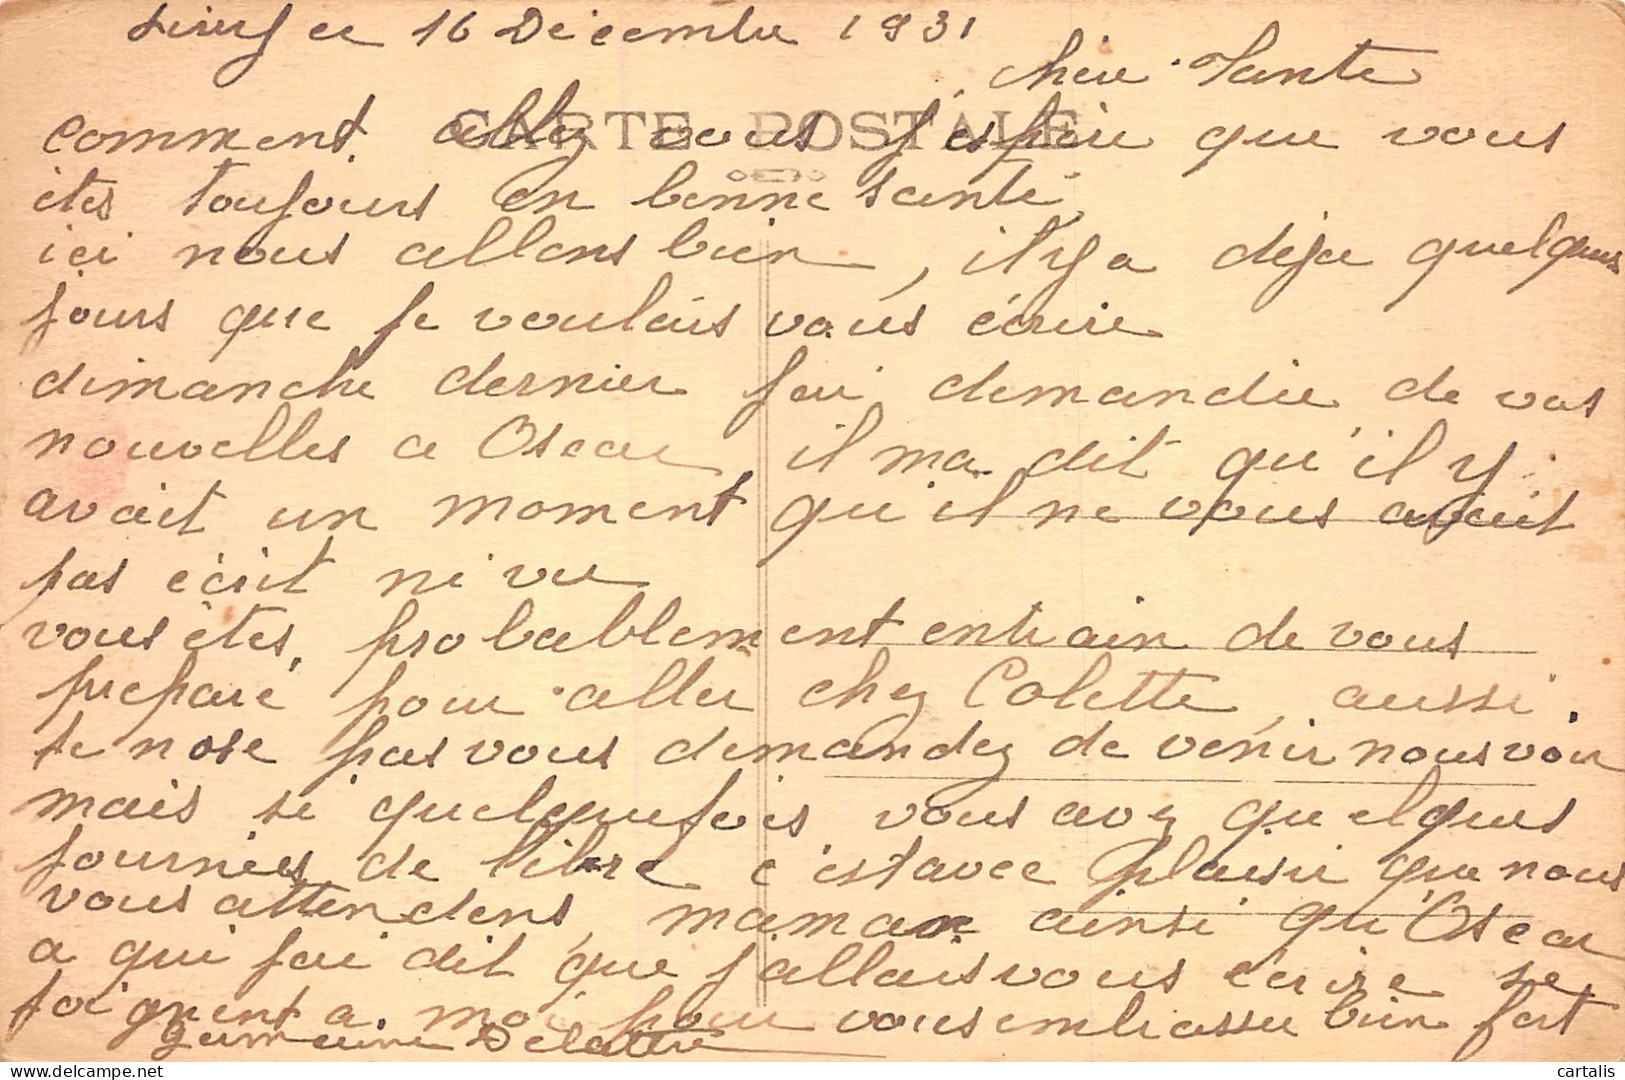 ce 16 Décembre 1931
chère Tante
CARTE POSTALE
comment allez vous j'espère que vous
êtes toujours en bonne santé,
ici nous allons bien, il y a déja quelques
jours que je voulais vous écrire
dimanche dernier j'ai demandée de vos
nouvelles a Oscar, il ma dit qu'il y
avait un moment qu'il ne vous avait
pas écrit ni vu
vous êtes, probablement entrain de vous
préparé pour aller chez Colette, aussi.
je nose pas vous demandez de venir nous voir
mais si quelquefois vous avez quelques
journées de libre c'est avec plaisir que nous
vous attendons, maman ainsi qu'Oscar
a qui j'ai dit que j'allais vous écrire se
joignent a moi pour vous embrasser bien fort
Germaine Delattre
cartalis